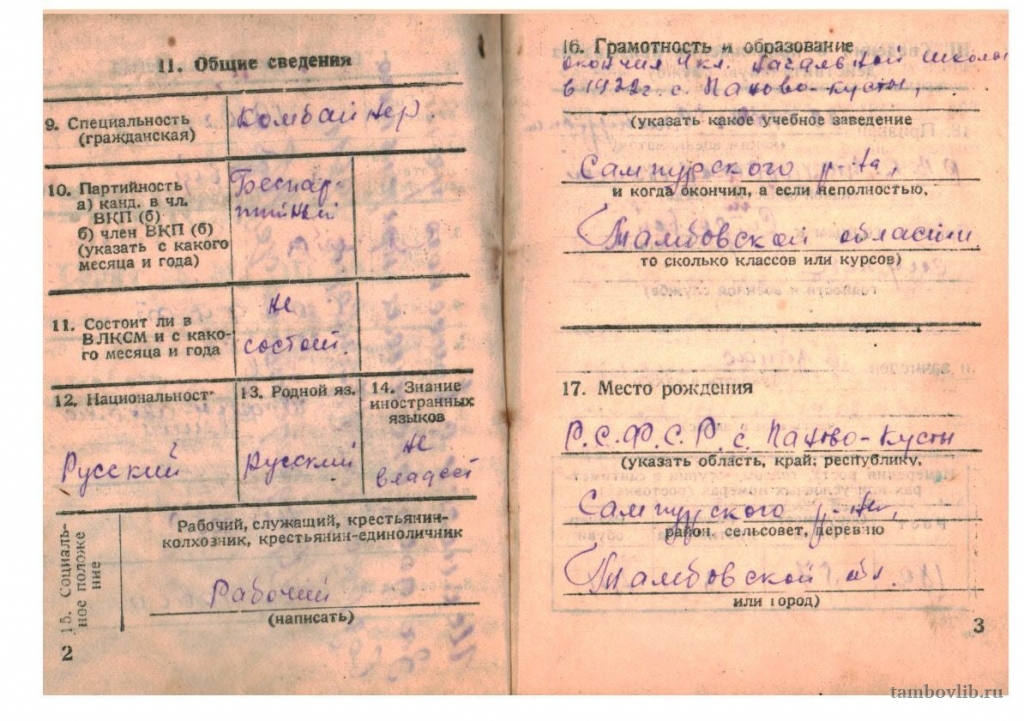 11. Общие сведения
9. Специальность
(гражданская)
Комбайнер.
10. Партийность
а) канд. в чл.
ВКП (б)
б) член ВКП (б)
(указать с какого
месяца и года)
Беспар-
тийный
11. Состоит ли в
ВЛКСМ и с како-
го месяца и года
не
состоит.
12. Национальност
Русский
13. Родной яз.
Русский
14. Знание
иностранных
языков
не
владеет
15. Социаль-
ное положе
ние
Рабочий, служащий, крестьянин-
колхозник, крестьянин-единоличник
Рабочий
(написать)
2
16. Грамотность и образование
окончил 4 кл. начальной школы
в 1922г. с. Пахово-кусты,
(указать какое учебное заведение
Сампурского р-на,
и когда окончил, а если неполностью,
Тамбовской области
то сколько классов или курсов)
17. Место рождения
Р.С.Ф.С.Р. с. Пахово-Кусты
(указать область, край, республику,
Сампурского р-на,
район, сельсовет, деревню
Тамбовской обл.
или город)
3
tambovlib.ru